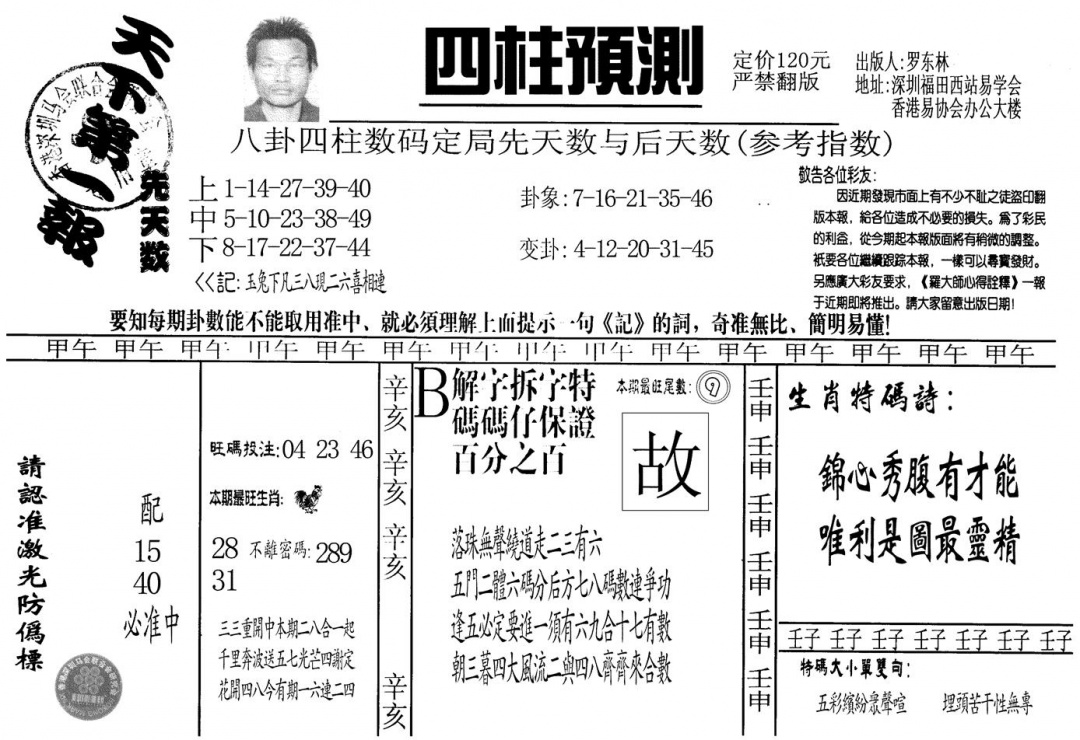 天下第一報
四柱預測
定价120元
严禁翻版
出版人:罗东林
地址:深圳福田西站易学会
香港易协会办公大楼
八卦四柱数码定局先天数与后天数(参考指数)
先天数
上 1-14-27-39-40
中 5-10-23-38-49
下 8-17-22-37-44
<<記: 玉兔下凡三八現二六喜相連
卦象: 7-16-21-35-46
变卦: 4-12-20-31-45
敬告各位彩友:
因近期發現市面上有不少不耻之徒盜印翻
版本報，給各位造成不必要的損失。爲了彩民
的利益，從今期起本報版面將有稍微的調整。
衹要各位繼續跟踪本報，一樣可以尋寶發財。
另應廣大彩友要求，《羅大師心得詮釋》一報
于近期即將推出。請大家留意出版日期!
要知每期卦數能不能取用准中、就必須理解上面提示一句《記》的詞，奇准無比、簡明易懂!
甲午 甲午 甲午 甲午 甲午 甲午 甲午 甲午 甲午 甲午 甲午 甲午 甲午 甲午 甲午
請認准激光防僞標
配
15
40
必准中
旺碼投注: 04 23 46
本期最旺生肖:
28 不離密碼: 289
31
三三重開中本期二八合一起
千里奔波送五七光芒四謝定
花開四八今有期一六連二四
辛亥
辛亥
辛亥
辛亥
B 解字拆字特
碼碼仔保證
百分之百
本期最旺尾數: 9
故
落珠無聲繞道走二三有六
五門二體六碼分后方七八碼數連爭功
逢五必定要進一須有六九合十七有數
朝三暮四大風流二與四八齊齊來合數
壬申
壬申
壬申
壬申
壬申
壬申
生肖特碼詩:
錦心秀腹有才能
唯利是圖最靈精
壬子 壬子 壬子 壬子 壬子 壬子 壬子
特碼大小單雙句:
五彩繽紛衆聲喧 埋頭苦干性無專